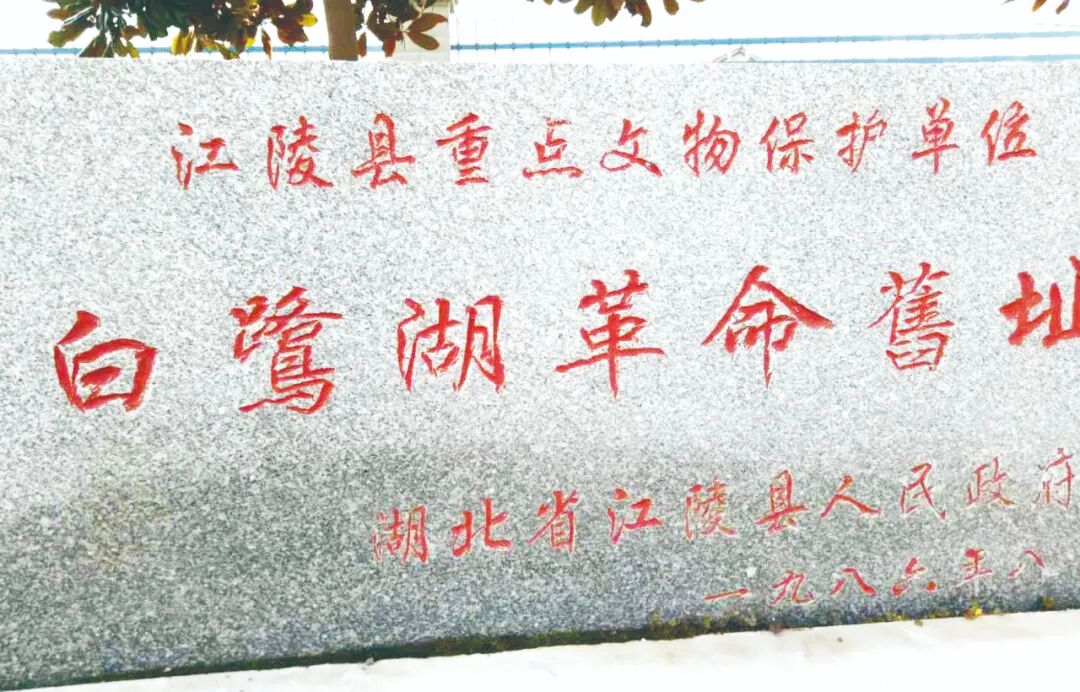 江陵县重点文物保护单位
白鷺湖革命舊址
湖北省江陵县人民政府
一九八六年八